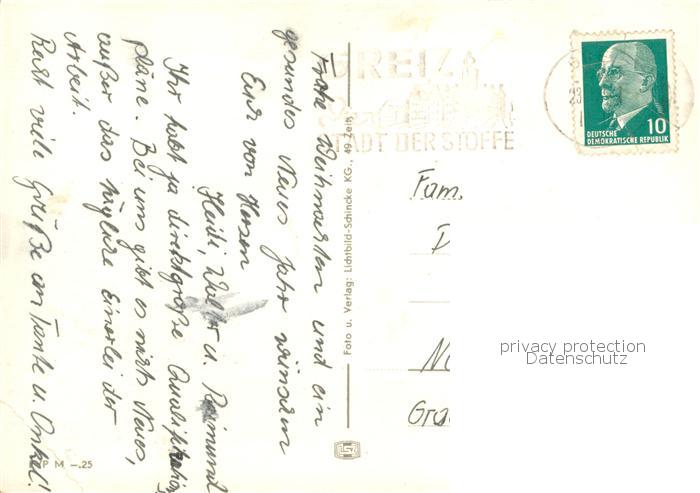 Frohe Weihnachten und ein
gesundes Neues Jahr wünschen
Euch von Herzen
Heidi, Walter u. Raimund
Ihr habt ja direkt große Qualifikations
pläne. Bei uns gibt es nichts Neues,
außer das tägliche Einerlei der
Arbeit.
Recht viele Grüße an Tante u. Onkel!
P M -.25
Foto u. Verlag: Lichtbild-Schincke KG., 49 Zeitz
GREIZ
STADT DER STOFFE
10
DEUTSCHE
DEMOKRATISCHE REPUBLIK
Fam.
privacy protection
Datenschutz